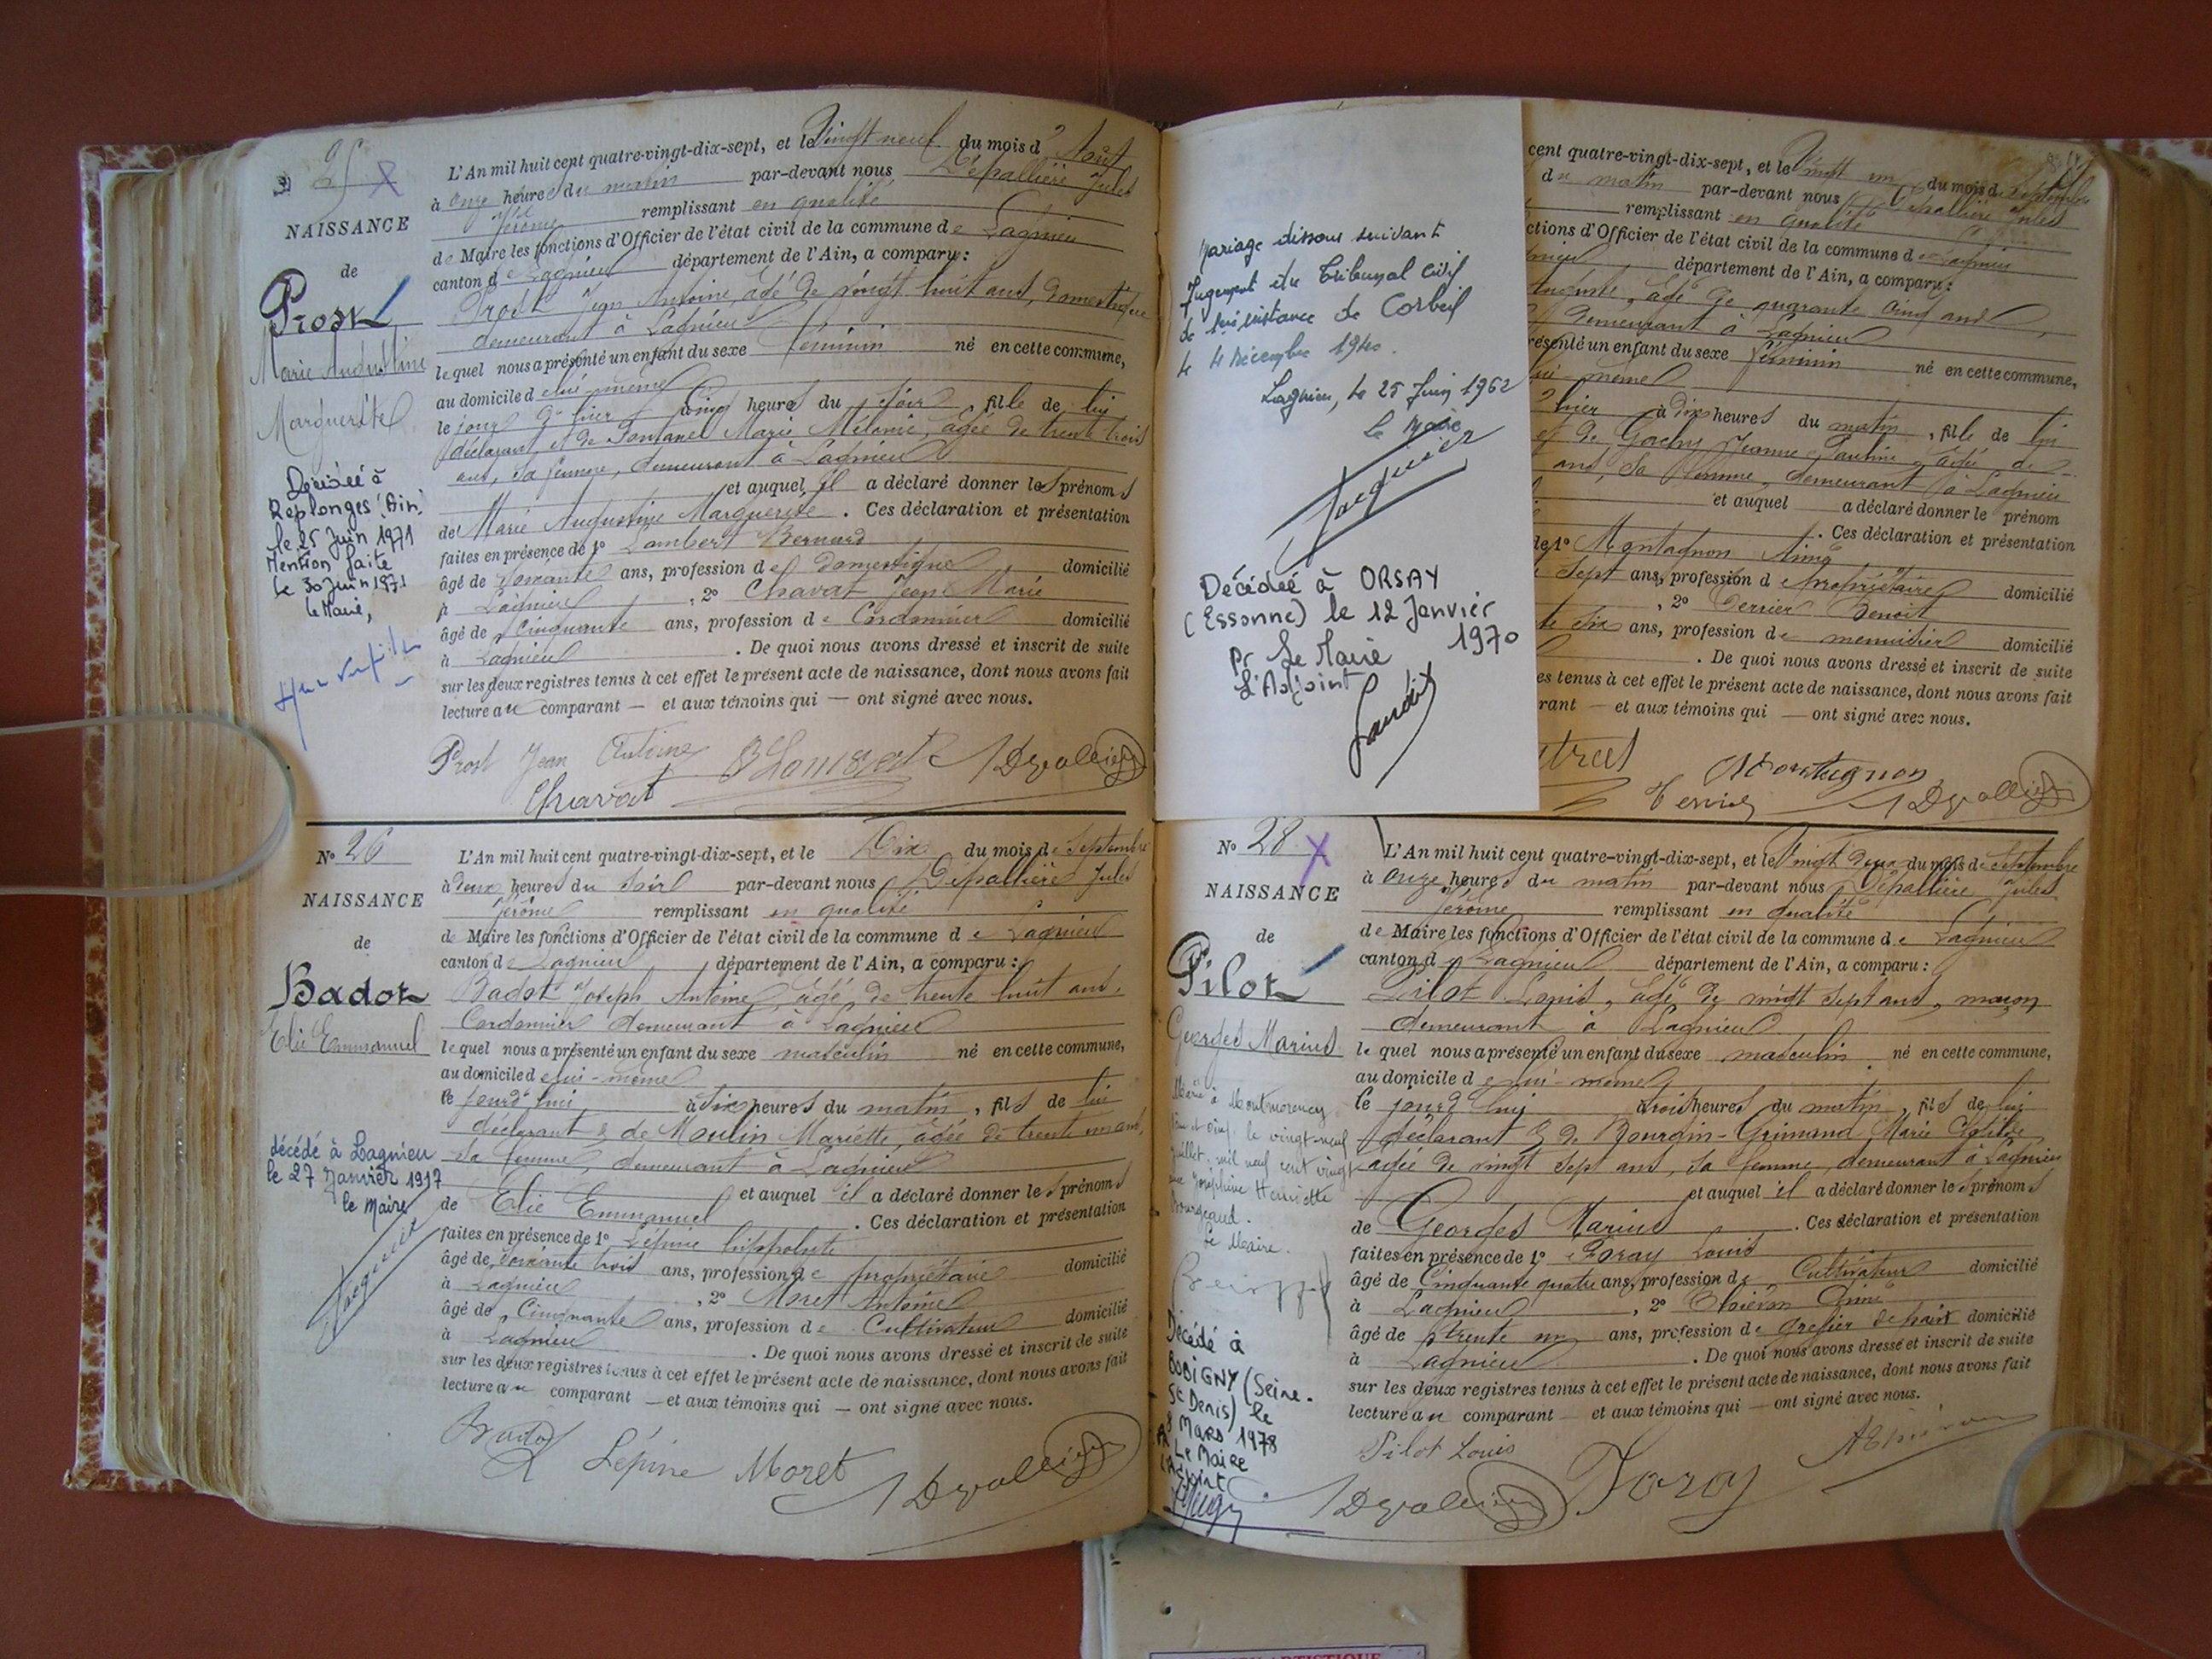 N° 25
NAISSANCE
de
Prost
Marie Augustine
Marguerite
Décédée à
Replonges (Ain)
le 25 Juin 1971
Mention faite
le 30 Juin 1971
le Maire,
L'An mil huit cent quatre-vingt-dix-sept, et le Vingt neuf du mois d'Août
à onze heures du matin par-devant nous Dépallière Jules
Jérôme remplissant en qualité
de Maire les fonctions d'Officier de l'état civil de la commune de Lagnieu
canton de Lagnieu département de l'Ain, a comparu :
Prost Jean Antoine, âgé de vingt huit ans, domestique
demeurant à Lagnieu
lequel nous a présenté un enfant du sexe féminin né en cette commune,
au domicile de lui-même
le jour d'hier à cinq heures du soir, fille de lui
déclarant et de Fontanel Marie Mélanie, âgée de trente trois
ans, sa femme, demeurant à Lagnieu
et auquel il a déclaré donner les prénoms
de Marie Augustine Marguerite. Ces déclaration et présentation
faites en présence de 1° Lambert Bernard
âgé de soixante ans, profession de domestique domicilié
à Lagnieu, 2° Chavat Jean Marie
âgé de cinquante ans, profession de Cordonnier domicilié
à Lagnieu. De quoi nous avons dressé et inscrit de suite
sur les deux registres tenus à cet effet le présent acte de naissance, dont nous avons fait
lecture au comparant — et aux témoins qui — ont signé avec nous.
Prost Jean Antoine B Lambert JDepallière
Chavat
N° 26
NAISSANCE
de
Badot
Elie Emmanuel
décédé à Lagnieu
le 27 Janvier 1917
le Maire
Jacquier
L'An mil huit cent quatre-vingt-dix-sept, et le Dix du mois de Septembre
à deux heures du soir par-devant nous Dépallière Jules
Jérôme remplissant en qualité
de Maire les fonctions d'Officier de l'état civil de la commune de Lagnieu
canton de Lagnieu département de l'Ain, a comparu :
Badot Joseph Antoine, âgé de trente huit ans,
Cordonnier demeurant à Lagnieu
lequel nous a présenté un enfant du sexe masculin né en cette commune,
au domicile de lui-même
le jourd'hui à dix heures du matin, fils de lui
déclarant & de Moulin Mariette, âgée de trente un ans,
sa femme, demeurant à Lagnieu
et auquel il a déclaré donner les prénoms
de Elie Emmanuel. Ces déclaration et présentation
faites en présence de 1° Lépine hippolyte
âgé de soixante trois ans, profession de propriétaire domicilié
à Lagnieu, 2° Moret Antoine
âgé de Cinquante ans, profession de Cultivateur domicilié
à Lagnieu. De quoi nous avons dressé et inscrit de suite
sur les deux registres tenus à cet effet le présent acte de naissance, dont nous avons fait
lecture au comparant — et aux témoins qui — ont signé avec nous.
Badot Lépine Moret JDepallière
Mariage dissous suivant
Jugement du Tribunal Civil
de 1ère instance de Corbeil
le 4 Décembre 1940.
Lagnieu, le 25 Juin 1962
le Maire
Jacquier
Décédée à ORSAY
(Essonne) le 12 Janvier
1970
Pr Le Maire
L'Adjoint
cent quatre-vingt-dix-sept, et le Vingt un du mois de Septembre
du matin par-devant nous Dépallière Jules
remplissant en qualité
ctions d'Officier de l'état civil de la commune de Lagnieu
département de l'Ain, a comparu :
Auguste, âgé de quarante cinq ans,
demeurant à Lagnieu
résenté un enfant du sexe féminin né en cette commune,
lui-même
hier à dix heures du matin, fille de lui
et de Gachy Jeanne Pauline, âgée de
ans, sa femme, demeurant à Lagnieu
et auquel a déclaré donner le prénom
. Ces déclaration et présentation
de 1° Montagnon Aimé
sept ans, profession de propriétaire domicilié
, 2° Perrier Benoit
te six ans, profession de menuisier domicilié
. De quoi nous avons dressé et inscrit de suite
es tenus à cet effet le présent acte de naissance, dont nous avons fait
rant — et aux témoins qui — ont signé avec nous.
Montagnon
JDepallière
N° 28
NAISSANCE
de
Pilot
Georges Marius
Marié à Montmorency
Seine et Oise, le vingt-neuf
juillet, mil neuf cent vingt
Joséphine Henriette
Le Maire.
Décédé à
BOBIGNY (Seine-
St Denis) le
8 Mars 1978
Pr Le Maire
L'Adjoint
L'An mil huit cent quatre-vingt-dix-sept, et le Vingt deux du mois de Septembre
à onze heures du matin par-devant nous Dépallière Jules
Jérôme remplissant en qualité
de Maire les fonctions d'Officier de l'état civil de la commune de Lagnieu
canton de Lagnieu département de l'Ain, a comparu :
Pilot Louis, âgé de vingt sept ans, maçon
demeurant à Lagnieu
lequel nous a présenté un enfant du sexe masculin né en cette commune,
au domicile de lui-même
le jourd'hui à trois heures du matin, fils de lui
déclarant & de Bourgin-Grimaud Marie Clotilde,
âgée de vingt sept ans, sa femme, demeurant à Lagnieu
et auquel il a déclaré donner les prénoms
de Georges Marius. Ces déclaration et présentation
faites en présence de 1° Foray Louis
âgé de Cinquante quatre ans, profession de Cultivateur domicilié
à Lagnieu, 2°
âgé de trente un ans, profession de greffier de paix domicilié
à Lagnieu. De quoi nous avons dressé et inscrit de suite
sur les deux registres tenus à cet effet le présent acte de naissance, dont nous avons fait
lecture au comparant — et aux témoins qui — ont signé avec nous.
Pilot Louis
JDepallière Foray